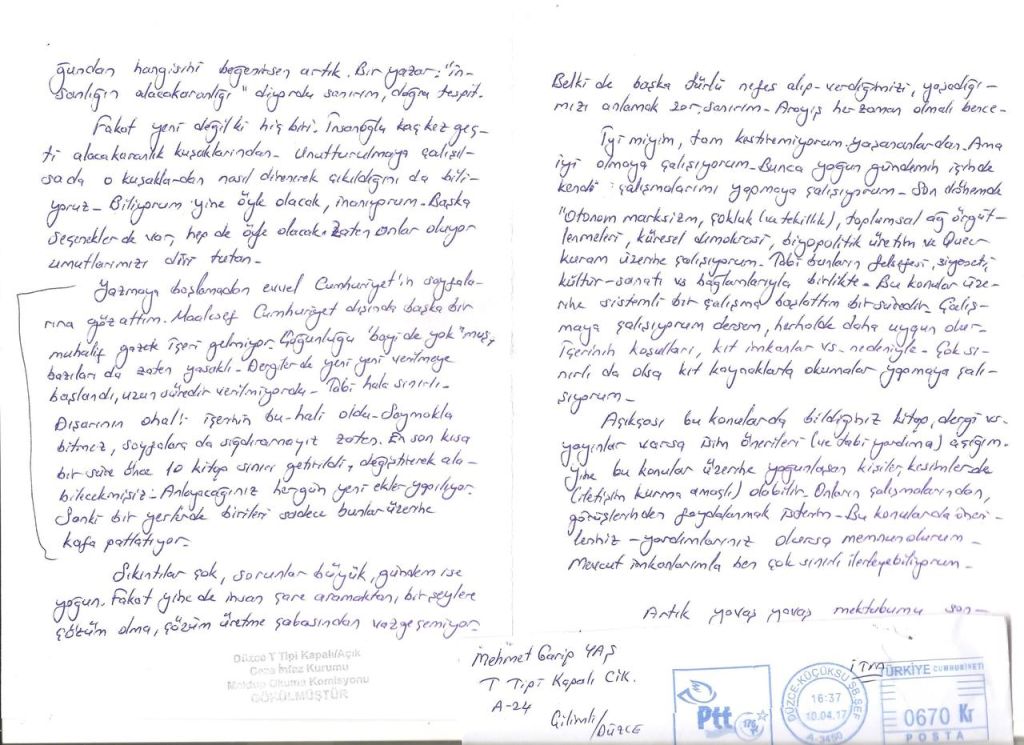 ğundan hangisini beğenirsen artık. Bir yazar: "in-
sanlığın alacakaranlığı" diyordu sanırım, doğru tespit.
Fakat yeni değil ki hiç biri. İnsanoğlu kaç kez geç-
ti alacakaranlık kuşaklarından- Unutturulmaya çalışıl-
sada o kuşaklardan nasıl direnerek çıkıldığını da bili-
yoruz- Biliyorum yine öyle olacak, inanıyorum- Başka
seçenekler de var, hep de öyle olacak. Zaten onlar oluyor
umutlarımızı diri tutan-
Yazmaya başlamadan evvel Cumhuriyet'in sayfala-
rına göz attım. Maalesef Cumhuriyet dışında başka bir
muhalif gazete içeri gelmiyor. Çoğunluğu "bayi de yok"muş,
bazıları da zaten yasaklı- Dergiler de yeni yeni verilmeye
başlandı, uzun süredir verilmiyordu- Tabi hala sınırlı-
Dışarının ohal! içerinin bu-hali oldu- Saymakla
bitmez, sayfalara da sığdıramayız zaten. En son kısa
bir süre önce 10 kitap sınırı getirildi, değiştirerek ala-
bilecekmişiz- Anlayacağınız hergün yeni ekler yapılıyor.
Sanki bir yerlerde birileri sadece bunlar üzerine
kafa patlatıyor-
Sıkıntılar çok, sorunlar büyük, gündem ise
yoğun. Fakat yine de insan çare aramaktan, bir şeylere
çözüm olma, çözüm üretme çabasından vazgeçemiyor.
Düzce T Tipi Kapalı/Açık
Ceza İnfaz Kurumu
Mektup Okuma Komisyonu
GÖRÜLMÜŞTÜR
Belki de başka türlü nefes alıp-verdiğimizi, yaşadığı-
mızı anlamak zor, sanırım- Arayış her zaman olmalı bence-
İyi miyim, tam kestiremiyorum yaşananlardan- Ama
iyi olmaya çalışıyorum- Bunca yoğun gündemin içinde
kendi çalışmalarımı yapmaya çalışıyorum- Son dönemde
"Otonom marksizm, çokluk (ve tekillik), toplumsal ağ örgüt-
lenmeleri, küresel demokrasi, biyopolitik üretim ve Queer
kuram üzerine çalışıyorum- Tabi bunların felsefesi, siyaseti,
kültür-sanatı vs bağlamlarıyla birlikte- Bu konular üze-
rine sistemli bir çalışma başlattım bir süredir. Çalış-
maya çalışıyorum dersem, herhalde daha uygun olur-
İçerinin koşulları, kıt imkanlar vs- nedeniyle- Çok sı-
nırlı da olsa kıt kaynaklarla okumalar yapmaya çalı-
şıyorum-
Açıkçası bu konularda bildiğiniz kitap, dergi vs-
yayınlar varsa isim önerileri (ve tabi yardıma) açığım-
Yine bu konular üzerine yoğunlaşan kişiler, kesimler de
(iletişim kurma amaçlı) olabilir- Onların çalışmalarından,
görüşlerinden faydalanmak isterim- Bu konularda öneri-
leriniz -yardımlarınız olursa memnun olurum-
Mevcut imkanlarımla ben çok sınırlı ilerleyebiliyorum-
Artık yavaş yavaş mektubumu son-
Mehmet Garip YAŞ
T Tipi Kapalı Cik.
A-24
Çilimli/DÜZCE
Ptt
DÜZCE-KÜÇÜKSU ŞB.ŞEF
16:37
10.04.17
TÜRKİYE CUMHURİYETİ
0670 Kr
POSTA